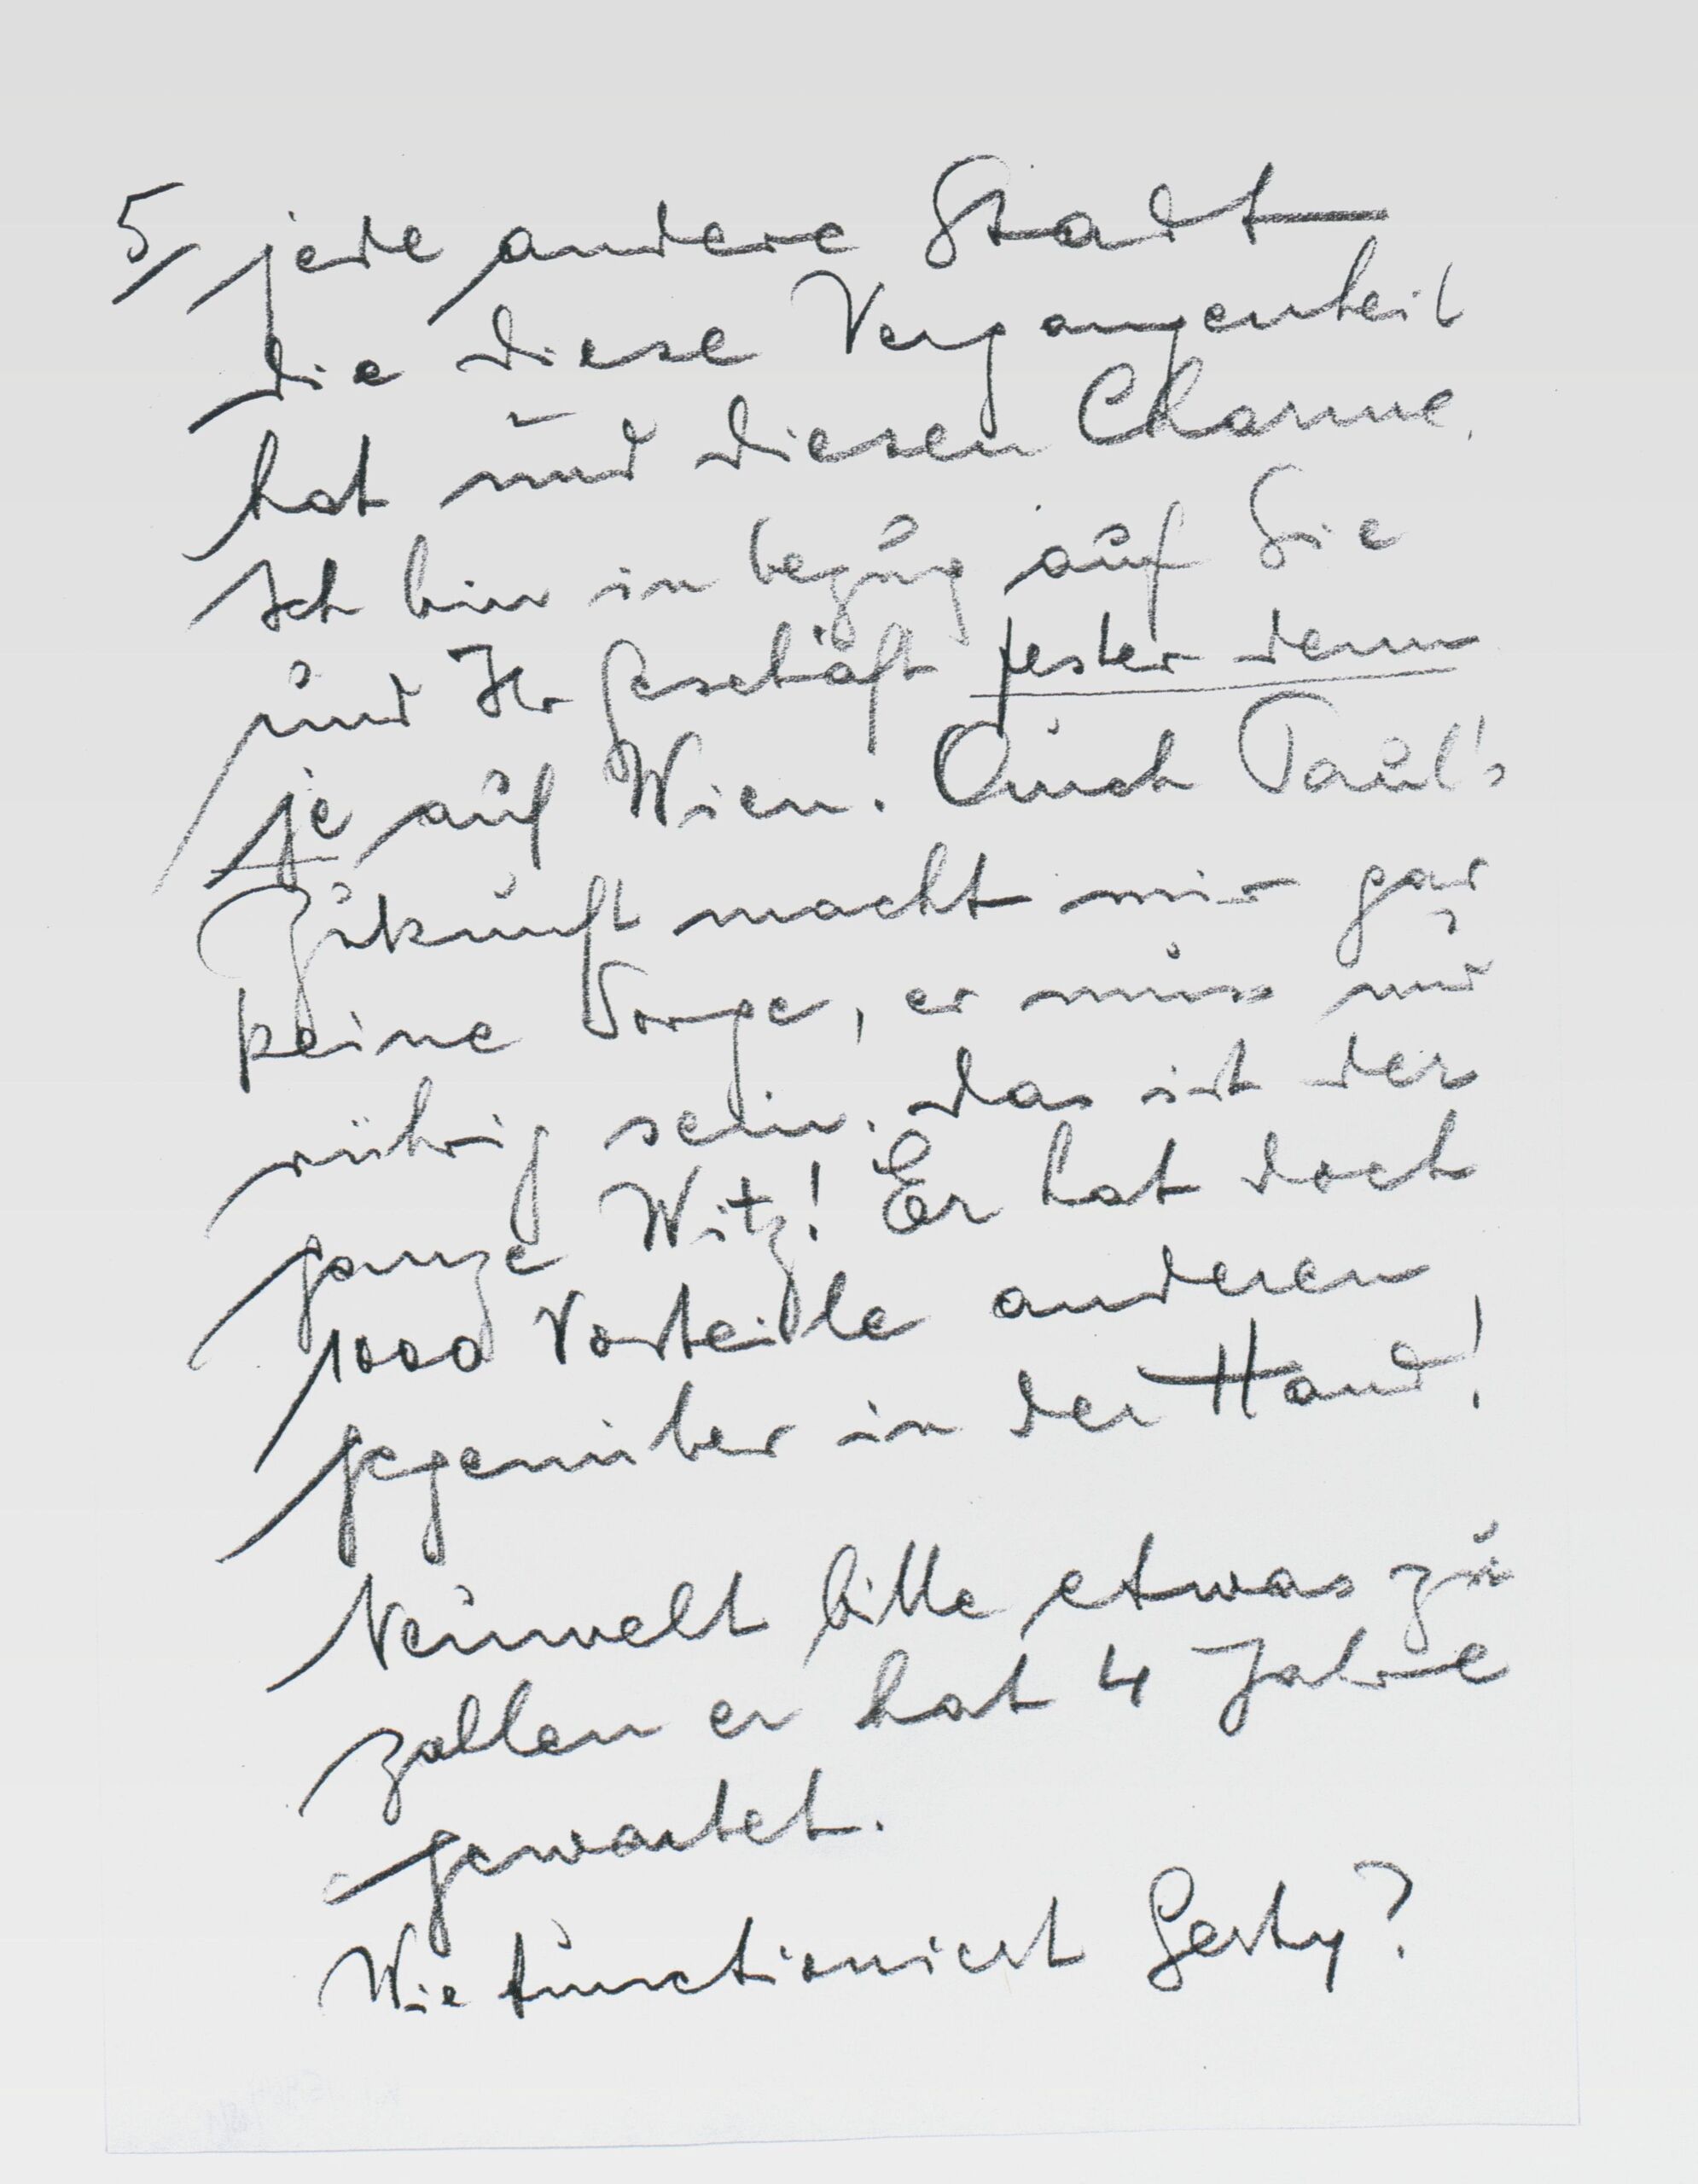 5/ jede andere Stadt
die diese Vergangenheit
hat und diesen Charme.
Ich bin in bezug auf Sie
und Ihr Geschäft fester denn
je auf Wien. Auch Paul's
Zukunft macht mir gar
keine Sorge, er muss nur
rührig sein. das ist der
ganze Witz! Er hat doch
1000 Vorteile anderen
gegenüber in der Hand!
bitte etwas zu
zallen er hat 4 Jahre
gewartet.
Wie functioniert Gerty?